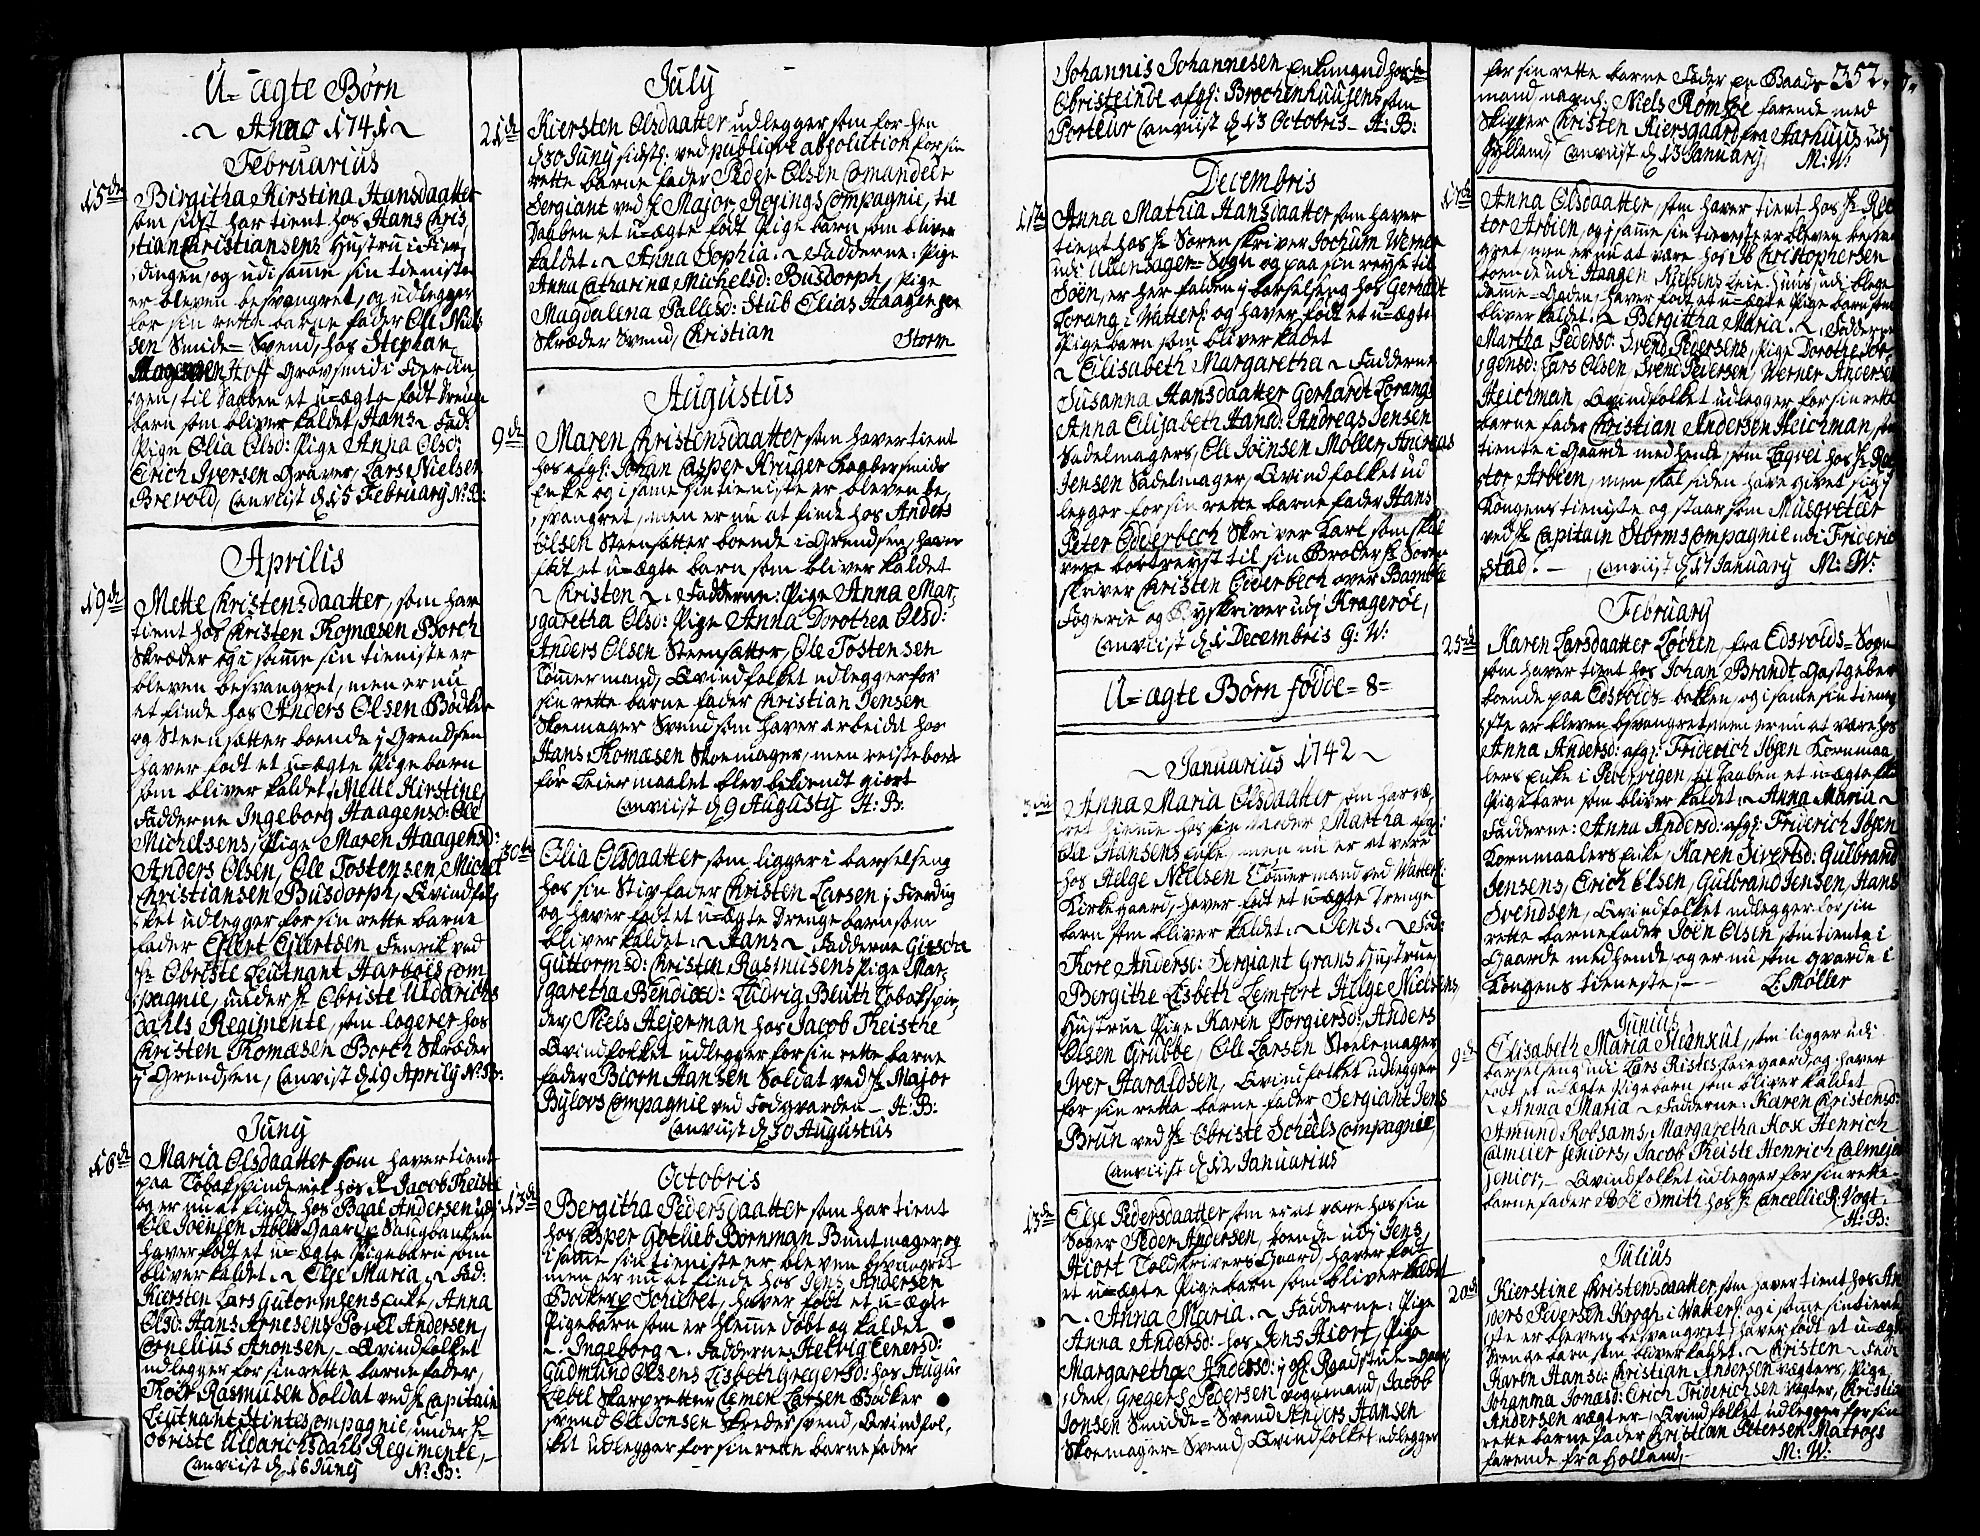 U=ægte Børn
Anno 1741
Februarius
15de
Birgitha Kirstina Hansdaatter
som sidst har tient hos Hans Chris,
tian Christiansens Hustru i Fier,
dingen, og udi samme sin tieniste
er bleven besvangret, og udlegger
for sin rette barne fader Ole Niel
sen Smide=Svend, hos Stephan
Hoff Grovsmid i Fierdin,
gen, til Daaben et u=ægte født drenge
barn som bliver kaldet, Hans, Fad:
Pige Olia Olsd: Pige Anna Olsd:
Erich Iversen Graver, Lars Nielsen
Brevold, Convist d 15 February N: B:
Aprilis
19de
Mette Christensdaatter, som har
tient hos Christen Thomæsen Borch
Skræder og i samme sin tieniste er
bleven besvangret, men er nu
at finde hos Anders Olsen Bødker
og Steensætter boende i Grendsen
haver født et u=ægte Pige barn
som bliver kaldet, Mette Kirstine,
Fadderne Ingeborg Haagensd: Ole
Michelsens, Pige Maren Haagensd:
Anders Olsen, Ole Tostensen, Michel
Christiansen Busdorph, Qvindfol,
ket udlegger for sin rette barne
fader Eilert Eilertsen Fenrik ved
Hr Obriste Leutnant Harboes com
pagnie, under Hr Obriste Uldrichs
dahls Regimente, som logerer hos
Christen Thomæsen Borch Skræder
i Grendsen, Convist d 19 Aprily N: B:
Juny
16de
Maria Olsdaatter som haver tient
paa Tobakspinderiet hos Hr Jacob Theiste
og er nu at finde hos Baal Andersen ud
Ole Joensen Abels Gaard Saugbanken
haver født et u=ægte Pigebarn som
bliver kaldet Else Maria, Fad:
Kiersten Lars Gutormsens enke, Anna
Olsd: Hans Arnesens Povel Andersen,
Cornelius Anonsen, Qvindfolket
udlegger for sin rette barne fader,
Thore Rasmusen Soldat ved Hr Capitain
Lieutnant Stintes compagnie, under Hr
Obriste Uldrichsdahls Regimente,
Convist d 16 Juny N: B:
July
21de
Kiersten Olsdaatter udlegger som for hen
d 30 Juny sidstl: ved publique absolution for sin
rette barne fader Peder Olsen Comandeer
Sergiant ved Hr Major Royings Compagnie, til
Daaben et u=ægte født Pige barn som bliver
kaldet. Anna Sophia. Fadderne: Pige
Anna Catharina Michelsd: Busdorph, Pige
Magdalena Pallesd: Stub Elias Haagensen
Skræder Svend, Christian Storm
Augustus
9de
Maren Christensdaatter som haver tient
hos afg: Johan Casper Krüger Kaabersmids
Enke og i same sin tieniste er bleven be,
svangret, men er nu at finde hos Anders
Olsen Steensætter boende i Grendsen, haver
født et u=ægte barn som bliver kaldet
Christen. Fadderne: Pige Anna Mar,
garetha Olsd: Pige Anna Dorothea Olsd:
Anders Olsen Steensætter, Ole Tostensen
Tømmermand, Qvindfolket udlegger for
sin rette barne fader Christian Jensen
Skoemager Svend som haver arbeidet hos
Hans Thomæsen Skoemager, men reiste bort
før Leiermaalet blev bekiendt giort
Convist d 9 Augusty H: B:
30te
Olia Olsdaatter som ligger i barselseng
hos sin Stiv fader Christen Larsen i Fierding
og haver født et u=ægte Drenge barn som
bliver kaldet. Hans, Fadderne Gurchia
Guttormsd: Christen Rasmusens Pige Mar,
garetha Bendixd: Ludvig Bluth Tobakspin,
der, Niels Hejerman hos Jacob Theistre
Qvindfolket udlegger for sin rette barne
fader Biorn Hansen Soldat ved Hr Major
Bylovs Compagnie ved Fodgvarden H: B:
Convist d 30 Augustus
Octobris
13de
Bergitha Pedersdaatter som har tient
hos Casper Gotlieb Bornman Buntmager, og
i samme sin tieniste er bleven besvangret
men er nu at finde hos Jens Andersen
Bødker Schilret, haver født et u=ægte
Pigebarn som er Hiemme døbt og kaldet
Ingeborg. Fadderne: Helvig Einersd:
Gudmund Olsens Lisbeth Gregersd: hos August
Lebel Skarpretter Clemen Larsen Bødker
svend Ole Jonsen Skrædersvend, Qvindfol,
ket udlegger for sin rette barne fader
Johannis Johannesen Enkemand hos Hr
Obristeinde afg: Brochenhuusens som
Porteur Convist d 13 Octobris H: B:
Decembris
1ste
Anna Mathia Hansdaatter som haver
tient hos Hr Sorenskriver Jochum Werner
udi Ullensager=Sogn og paa sin reyse til
Søen, er her falden i barselseng hos Gerhardt
Lorang i Watterl: og haver født et u=ægte
Pigebarn som bliver kaldet
Elisabeth Margaretha, Fadderne
Susanna Hansdaatter Gerhardt Lorangs
Anna Elizabeth Hansd: Andreas Jensen
Sadelmagers, Ole Joensen Møller, Andreas
Jensen Sadelmager, Qvindfolket ud
legger for sin rette barne fader Hans
Peter Edderbech Skriver Karl som skal
vere bortreyst til sin Broder Hr Soren
skriver Christen Eiderbech over Bamble
Fogerie og Byskriver udj Kragerøe,
Convist d 1 Decembris G: W:
U=ægte Børn fødde=8=
Januarius 1742
3die
Anna Maria Olsdaatter som har væ,
ret hiemme hos sin Moder Martha afg:
Ole Hansens Enke, men nu er at vere
hos Helge Nielsen Tømmermand ved Watterl:
Kirkegaard, haver født et u=ægte Drenge
barn som bliver kaldet. Jens. Fad:
Thore Andersd: Sergiant Grans Hustrue,
Bergithe Lisbeth Lemfort Helge Nielsens
Hustrue Pige Karen Torgiersd: Anders
Olsen Grubbe, Ole Larsen Stoelemager
Iver Haraldsen, Qvindfolket udlegger
for sin rette barne fader Sergiant Jens
Brun ved Hr Obriste Scheels Compagnie,
Convist d 12 Januarius
13de
Else Pedersdaatter som er at være hos sin
Søger Peder Andersen, boende udi Jens
Hiort Toldskrivers Gaard, haver født
et u=ægte Pigebarn som bliver kaldet
Anna Maria. Fadderne: Pige
Anna Andersd: hos Jens Hiort, Pige
Margaretha Andersd: j gl. Raadstue=gaar
,den, Gregers Pedersen voggmand, Jacob
Jonsen Smidde=Svend Anders Hansen
Skoemager Svend, Qvindfolket udlegger
352.
for sin rette barne Fader en Baads
mand navnl: Niels Romsøe farende med
Skipper Christen Kiersgaard fra Aarhuus udj
Jylland, Convist d 13 January, M: W:
17de
Anna Olsdaatter, som haver tient hos Hr Rec
tor Arbien, og j samme sin tieneste er bleven besvan
gret, men er nu at være hos Ib Christophersen
boende udi Haagen Nielsens Leie=Huus, udi blege
damme=Gaden, haver født et u=ægte Pige barn som
bliver kaldet. Bergitha Maria. Fadderne
Martha Pedersd: Svend Pedersens, Pige Dorothe Jør,
gensd: Lars Olsen, Svend Pedersen, Werner Andersen
Heichman, Qvindfolket udlegger for sin rette
barne fader Christian Andersen Heichman, som
tiente i Gaarde med hende, som Laqvei hos Hr Rec
tor Arbien, men skal siden have givet sig j
Kongens tieniste og staar som Musqveteer
ved Hr Capitain Storms Compagnie udi Frideric
stad. Convist d 17 January M: W:
February
25de
Karen Larsdaatter Lochen, fra Edsvolds=Sogn
som haver tient hos Johan Brandt Gastgeber
boende paa Edsvolds=bakken, og i samme sin tieni
ste er bleven besvangret, men er nu at være hos
Anna Andersd: afg: Friderich Ibsen Kornmaa
lers Enke i Pebervigen, til Daaben et u=ægte
Pigebarn som bliver kaldet. Anna Maria
Fadderne: Anna Andersd: afg: Friderich Ibsen
Kornmaalers Enke, Karen Sivertsd: Gulbrand
Jensens, Erich Olsen, Gulbrand Jensen, Hans
Svendsen, Qvindfolket udlegger for sin
rette barnefader Joen Olsen, som tiente i
Gaarde med hende, og er nu som gvarde i
Kongens tieneste, L: Møller
Junius
9de
Elisabeth Maria Stunkul, som ligger udi
barselseng udi Lars Ristes Leiegaard, og haver
født et u=ægte Pigebarn som bliver kaldet
Anna Maria. Fadderne: Karen Christensd:
Amund Robsams, Margaretha Hox Henrich
Calmeier Seniors, Jacob Theiste Henrich Calmejer
senior, Qvindfolket udlegger for sin rette
barne fader Smith hos Hr Cancellie R: Vogt.
H: B:
Julius
20de
Kierstine Christensdaatter som haver tient hos An
ders Pedersen Krogh i Watterl: og i samme sin tieni
ste er bleven besvangret, haver født et u=ægte
drenge barn som bliver kaldet. Christen, Fad:
Karen Hansd: Christian Andersen Vægters, Pige
Johanna Jonasd: Erich Friderichsen vægter, Christian
Andersen vægter, Qvindfolket udlegger for sin
rette barne fader Christian Ottersen Matrøs
farende fra Holland, M: W: